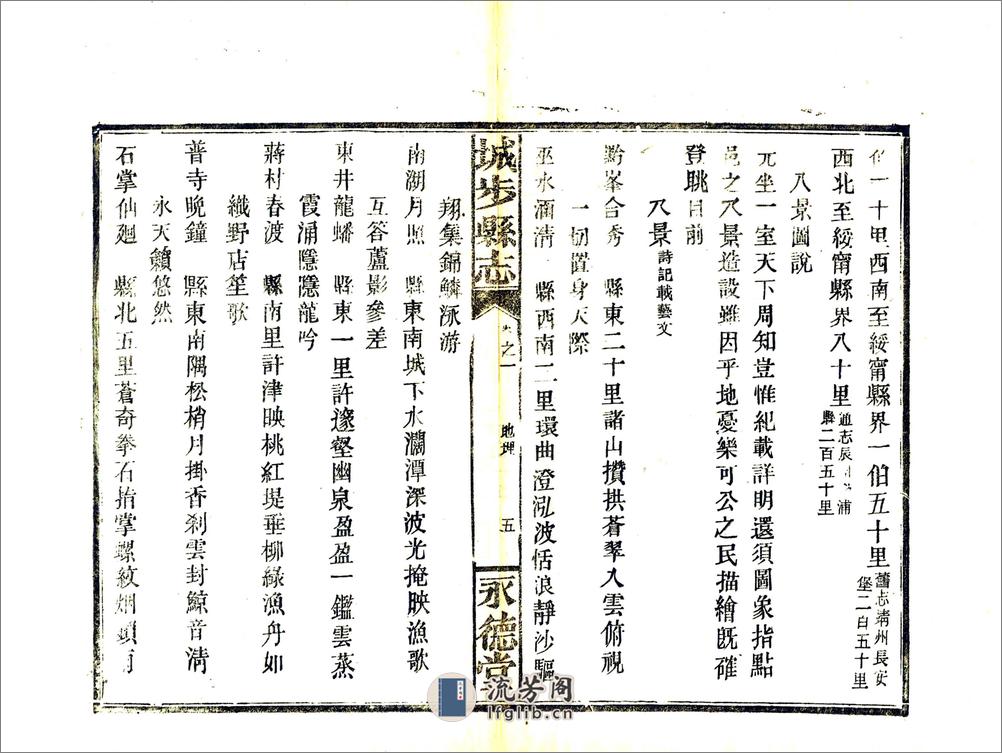 一十里西南至綏甯縣界一伯五十里舊志靖州長安堡二百五十里
西北至綏甯縣界八十里通志辰浦縣二百五十里
八景圖說
元坐一室天下周知豈惟紀載詳明還須圖象指點
邑之八景造設雖因乎地憂樂可公之民描繪旣確
登眺目前
八景詩記載藝文
黔峯合秀　縣東二十里諸山攢拱蒼翠入雲俯視
一切置身天際
巫水涵清　縣西南二里環曲澄泓波恬浪靜沙驅
城步縣志
卷之一
地理
五
永德堂
翔集錦鱗泳游
南湖月照　縣東南城下水濶潭深波光掩映漁歌
互答蘆影參差
東井龍蟠　縣東一里許邃壑幽泉盈盈一鑑雲蒸
霞涌隱隱龍吟
蔣村春渡　縣南里許津映桃紅堤垂柳綠漁舟如
織野店笙歌
普寺晚鐘　縣東南隅松梢月掛香刹雲封鯨音清
永天籟悠然
石掌仙廻　縣北五里蒼奇拳石指掌螺紋烟鎖雨
流芳阁
lfglib.cn